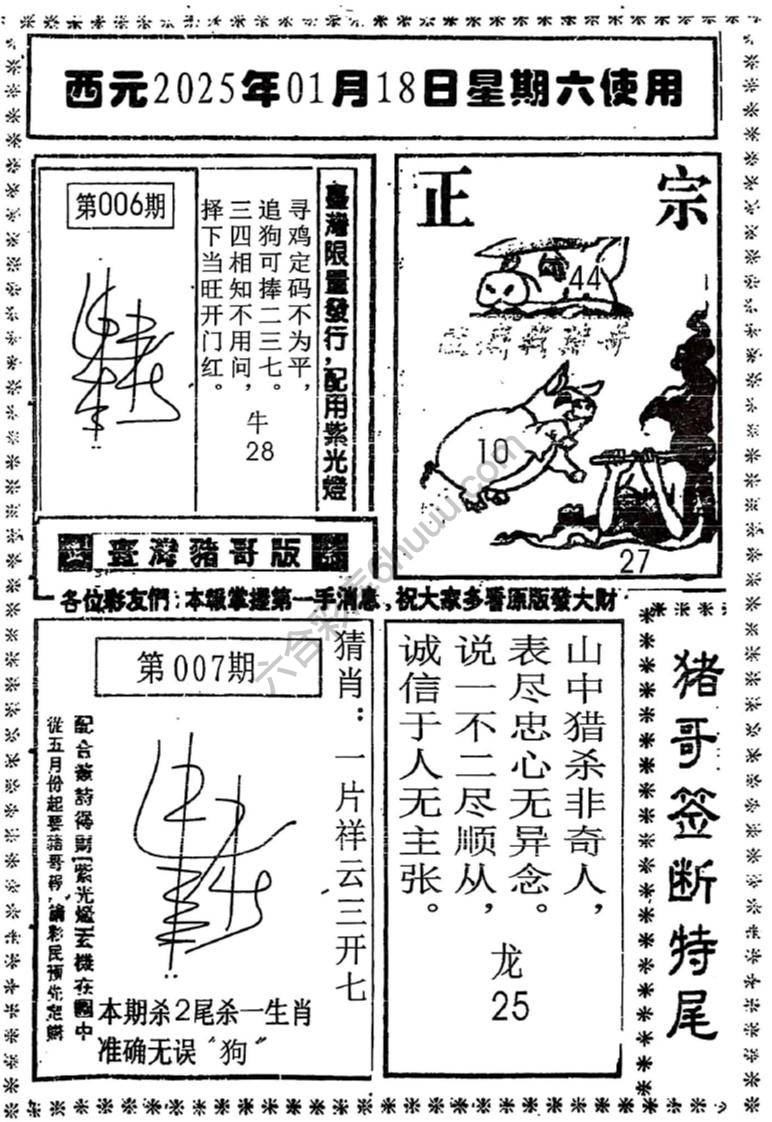 西元2025年01月18日星期六使用
第006期
寻鸡定码不为平，
追狗可捧二三七。
三四相知不用问，
择下当旺开门红。
牛
28
臺灣限量發行，配用紫光燈
正宗
44
10
27
臺灣豬哥版
各位彩友們：本報掌握第一手消息，祝大家多看原版發大財
第007期
猜肖：一片祥云三开七
配合簽詩得財紫光燈玄機在圖中
從五月份起要豬哥報，請彩民預先定購
本期杀2尾杀一生肖
准确无误“狗”
山中猎杀非奇人，
表尽忠心无异念。
说一不二尽顺从，
诚信于人无主张。
龙
25
猪哥签断特尾
六合彩库6huuu.com